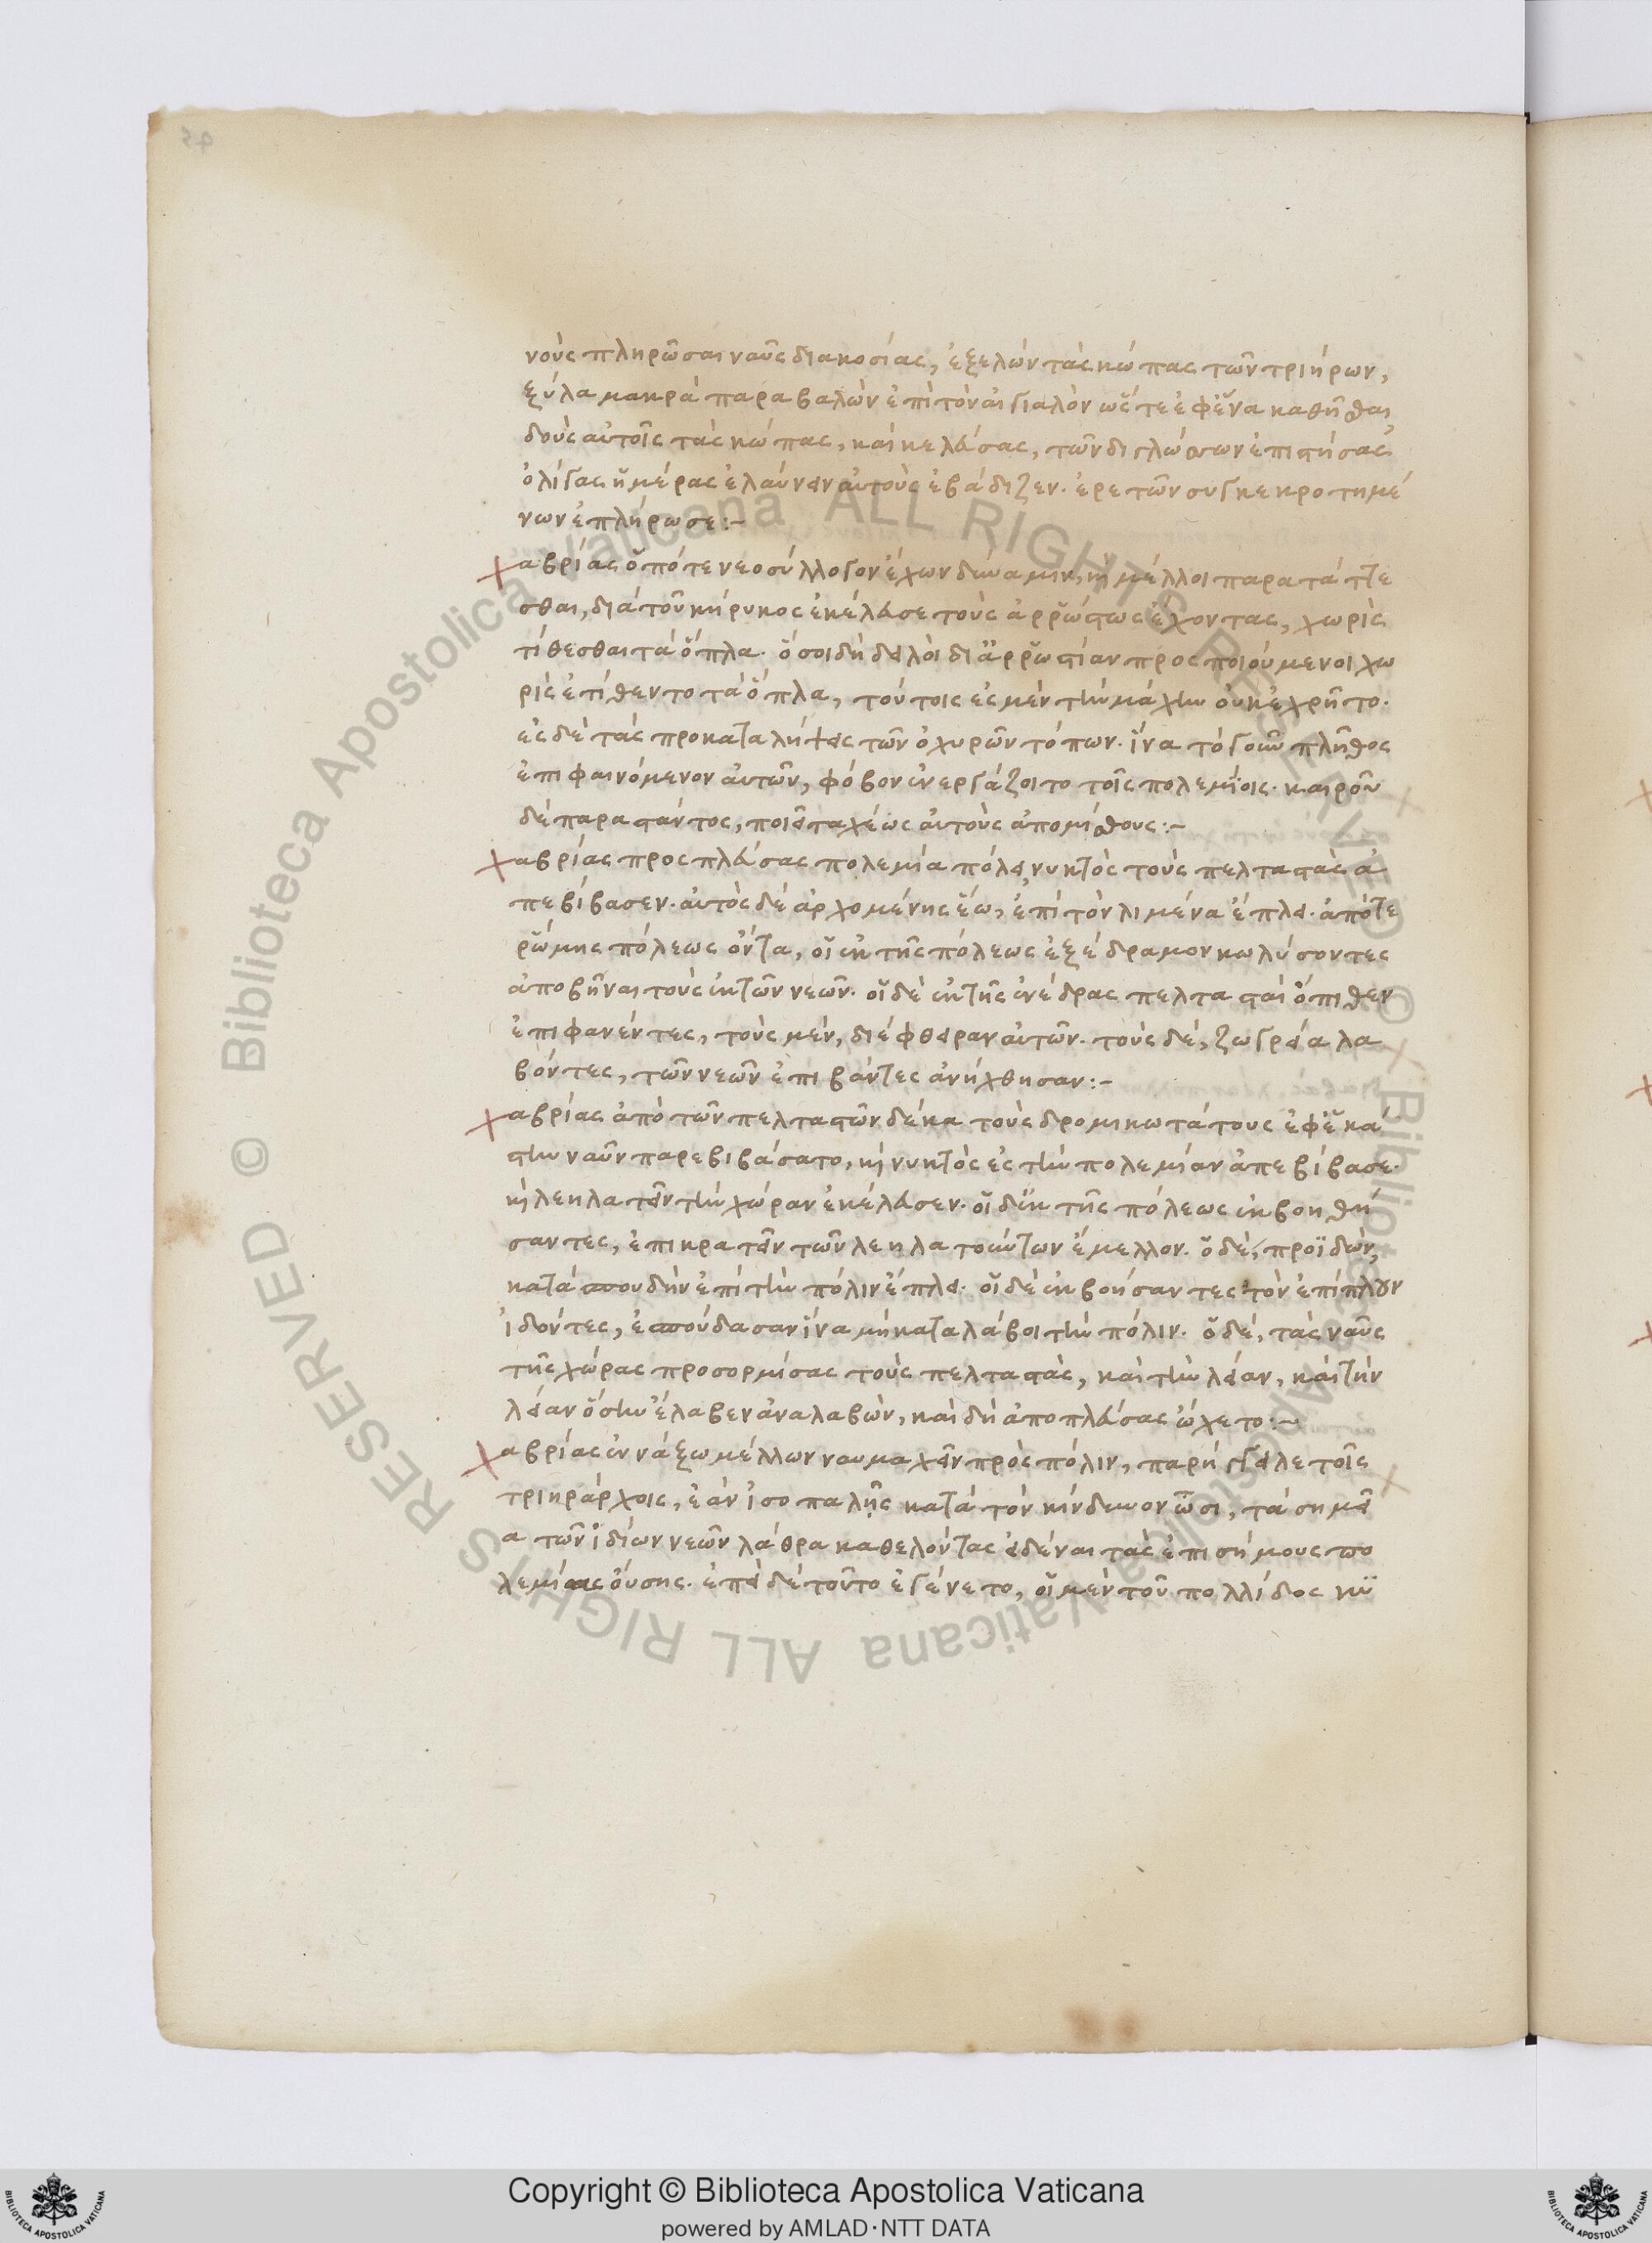 νοὺς πληρῶσαι ναῦς διακοσίας, ἐξελὼν τὰς κώπας τῶν τριήρων,
ξύλα μακρὰ παραβαλὼν ἐπὶ τὸν αἰγιαλὸν ὥστε ἐφ' ἕνα καθῆσθαι,
δοὺς αὐτοῖς τὰς κώπας, καὶ κελεύσας, τῶν διγλώσσων ἐπιστήσας
ὀλίγας ἡμέρας ἐλαύνειν αὐτοὺς ἐβάδιζεν. ἐρετῶν συγκεκροτημέ
νων ἐπλήρωσε:-
Χαβρίας ὁπότε νεοσύλλογον ἔχων δύναμιν, καὶ μέλλοι παρατάττε
σθαι, διὰ τοῦ κήρυκος ἐκέλευσε τοὺς ἀρρώστως ἔχοντας, χωρὶς
τίθεσθαι τὰ ὅπλα. ὅσοι δὴ δειλοὶ δι' ἀρρωστίαν προσποιούμενοι χω
ρὶς ἐτίθεντο τὰ ὅπλα, τούτοις ἐς μὲν τὴν μάχην οὐκ ἐχρῆτο.
ἐς δὲ τὰς προκαταλήψεις τῶν ὀχυρῶν τόπων. ἵνα τὸ γοῦν πλῆθος
ἐπιφαινόμενον αὐτῶν, φόβον ἐνεργάζοιτο τοῖς πολεμίοις. καιροῦ
δὲ παραστάντος, ποιεῖ ταχέως αὐτοὺς ἀπομίσθους:-
Χαβρίας προσπλεύσας πολεμίᾳ πόλει, νυκτὸς τοὺς πελταστὰς ἀ
πεβίβασεν. αὐτὸς δὲ ἀρχομένης ἕω, ἐπὶ τὸν λιμένα ἔπλει. ἀπότε
ρώμης πόλεως ὄντα, οἱ ἐκ τῆς πόλεως ἐξέδραμον κωλύσοντες
ἀποβῆναι τοὺς ἐκ τῶν νεῶν. οἱ δὲ ἐκ τῆς ἐνέδρας πελτασταὶ ὄπισθεν
ἐπιφανέντες, τοὺς μὲν, διέφθειραν αὐτῶν. τοὺς δὲ, ζωγρεία λα
βόντες, τῶν νεῶν ἐπιβάντες ἀνήχθησαν:-
Χαβρίας ἀπὸ τῶν πελταστῶν δέκα τοὺς δρομικωτάτους ἐφ' ἑκά
στην ναῦν παρεβιβάσατο, καὶ νυκτὸς ἐς τὴν πολεμίαν ἀπεβίβασε.
καὶ λεηλατεῖν τὴν χώραν ἐκέλευσεν. οἱ δ' ἐκ τῆς πόλεως ἐκβοηθή
σαντες, ἐπικρατεῖν τῶν λεηλατούντων ἔμελλον. ὁ δὲ, προϊδὼν,
κατὰ σπουδὴν ἐπὶ τὴν πόλιν ἔπλει. οἱ δὲ ἐκβοήσαντες τὸν ἐπίπλουν
ἰδόντες, ἐσπούδασαν ἵνα μὴ καταλάβοι τὴν πόλιν. ὁ δὲ, τὰς ναῦς
τῆς χώρας προσορμίσας τοὺς πελταστὰς, καὶ τὴν λείαν, καὶ τὴν
λείαν ὅσην ἔλαβεν ἀναλαβὼν, καὶ δὴ ἀποπλεύσας ᾤχετο:-
Χαβρίας ἐν νάξω μέλλων ναυμαχεῖν πρὸς πόλιν, παρήγγειλε τοῖς
τριηράρχοις, ἐὰν ἰσοπαλῆς κατὰ τὸν κίνδυνον ὦσι, τὰ σημεῖ
α τῶν ἰδίων νεῶν λάθρα καθελόντας εἰδέναι τὰς ἐπισήμους πο
λεμίας οὔσης. ἐπεὶ δὲ τοῦτο ἐγένετο, οἱ μὲν τοῦ πολλίδος κυ
Copyright © Biblioteca Apostolica Vaticana
powered by AMLAD·NTT DATA
© Biblioteca Apostolica Vaticana ALL RIGHTS RESERVED
© Biblioteca Apostolica Vaticana ALL RIGHTS RESERVED